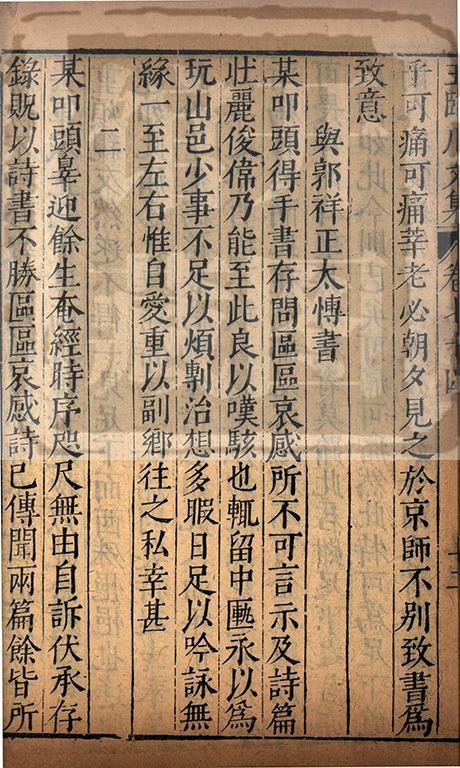 王臨川文集 卷七十四 十三
乎可痛可痛莘老必朝夕見之於京師不別致書爲
致意
與郭祥正太博書
某叩頭得手書存問區區哀感所不可言示及詩篇
壯麗俊偉乃能至此良以嘆駭也輒留中匭永以爲
玩山邑少事不足以煩剸治想多暇日足以吟詠無
緣一至左右惟自愛重以副鄉往之私幸甚
二
某叩頭辠逆餘生奄經時序咫尺無由自訴伏承存
錄貺以詩書不勝區區哀感詩已傳聞兩篇餘皆所